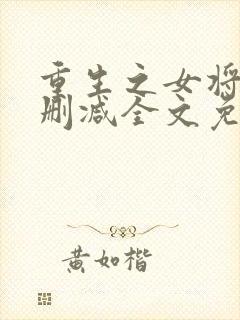 重生之女将
删减全文免
黄如楷